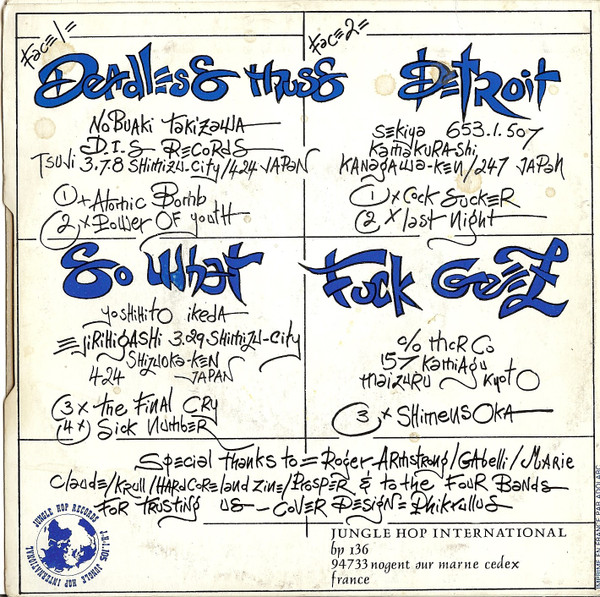 Face 1=
Deadless Muss
Nobuaki Takizawa
D.I.S Records
Tsuji 3.7.8 Shimizu-City/424 Japan
1 + Atomic Bomb
2 x Power of youth
Face 2=
Detroit
Sekiya 653.1.507
Kamakura-shi
Kanagawa-ken/247 Japan
1 x Cock Sucker
2 x last night
So What
Yoshihito Ikeda
Ejirihigashi 3.29 Shimizu-City
Shizuoka-ken
424 Japan
3 x The Final Cry
4 x Sick Number
Fuck Geez
c/o MCR Co
157 Kamiagu
Maizuru Kyoto
3 x Shimensoka
Special thanks to = Roger Armstrong/Gabelli/Marie
Claude/Krull/Hardcoreland zine/Prosper & to the Four Bands
For trusting us - Cover Design = Dhikrullus
JUNGLE HOP RECORDS
J.H.I.105 JUNGLE HOP INTERNATIONAL
JUNGLE HOP INTERNATIONAL
bp 136
94733 nogent sur marne cedex
france